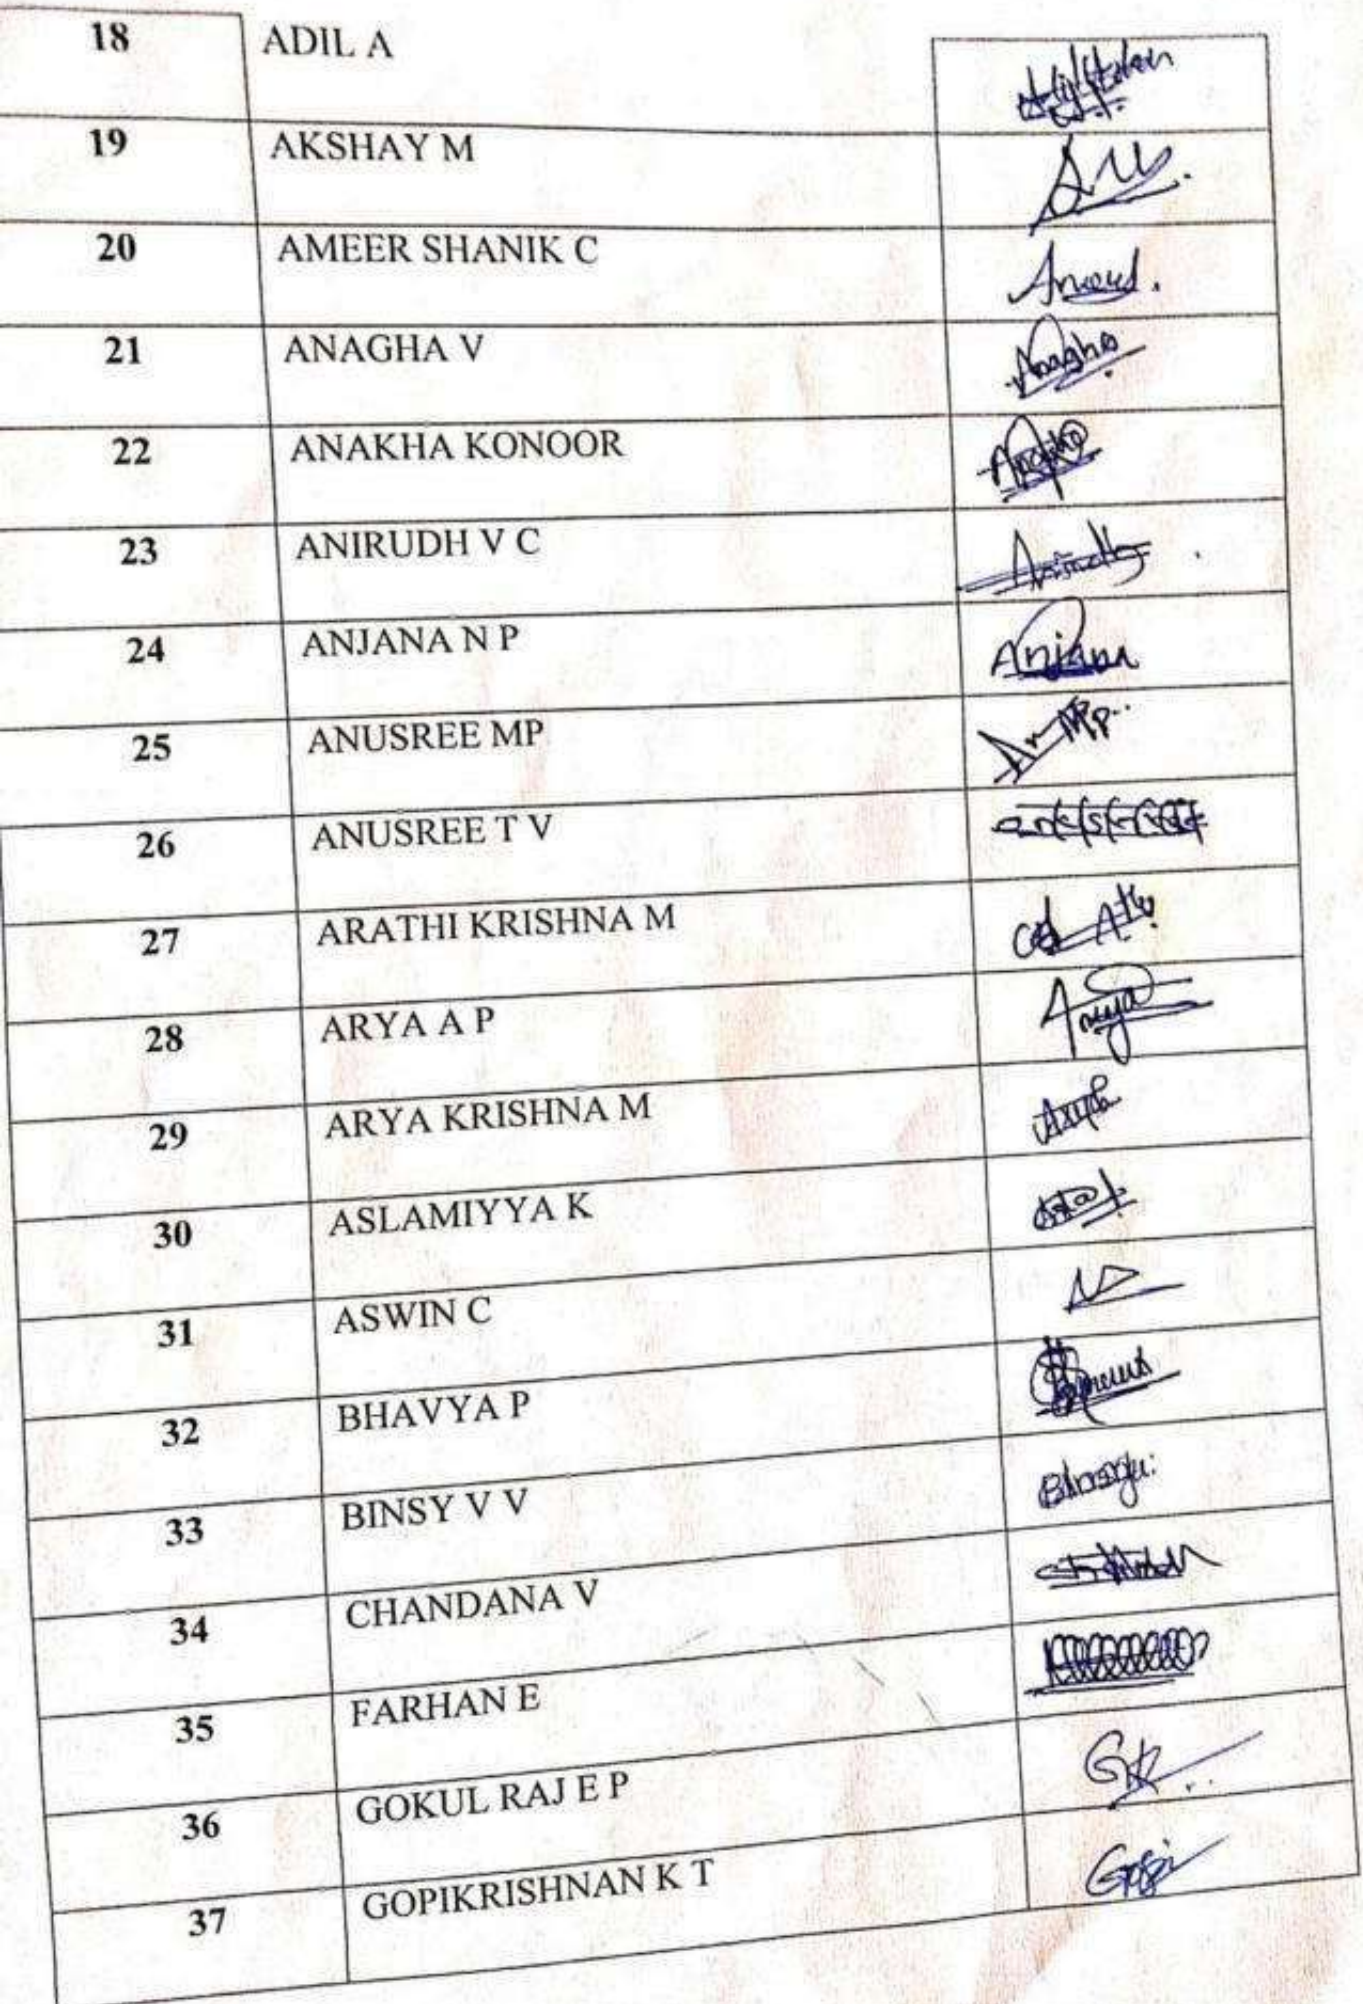 18 ADIL A
19 AKSHAY M
20 AMEER SHANIK C
21 ANAGHA V Anagha
22 ANAKHA KONOOR
23 ANIRUDH V C
24 ANJANA N P Anjana
25 ANUSREE MP
26 ANUSREE T V
27 ARATHI KRISHNA M
28 ARYA A P Arya
29 ARYA KRISHNA M
30 ASLAMIYYA K
31 ASWIN C
32 BHAVYA P
33 BINSY V V
34 CHANDANA V
35 FARHAN E
36 GOKUL RAJ E P
37 GOPIKRISHNAN K T Gopi